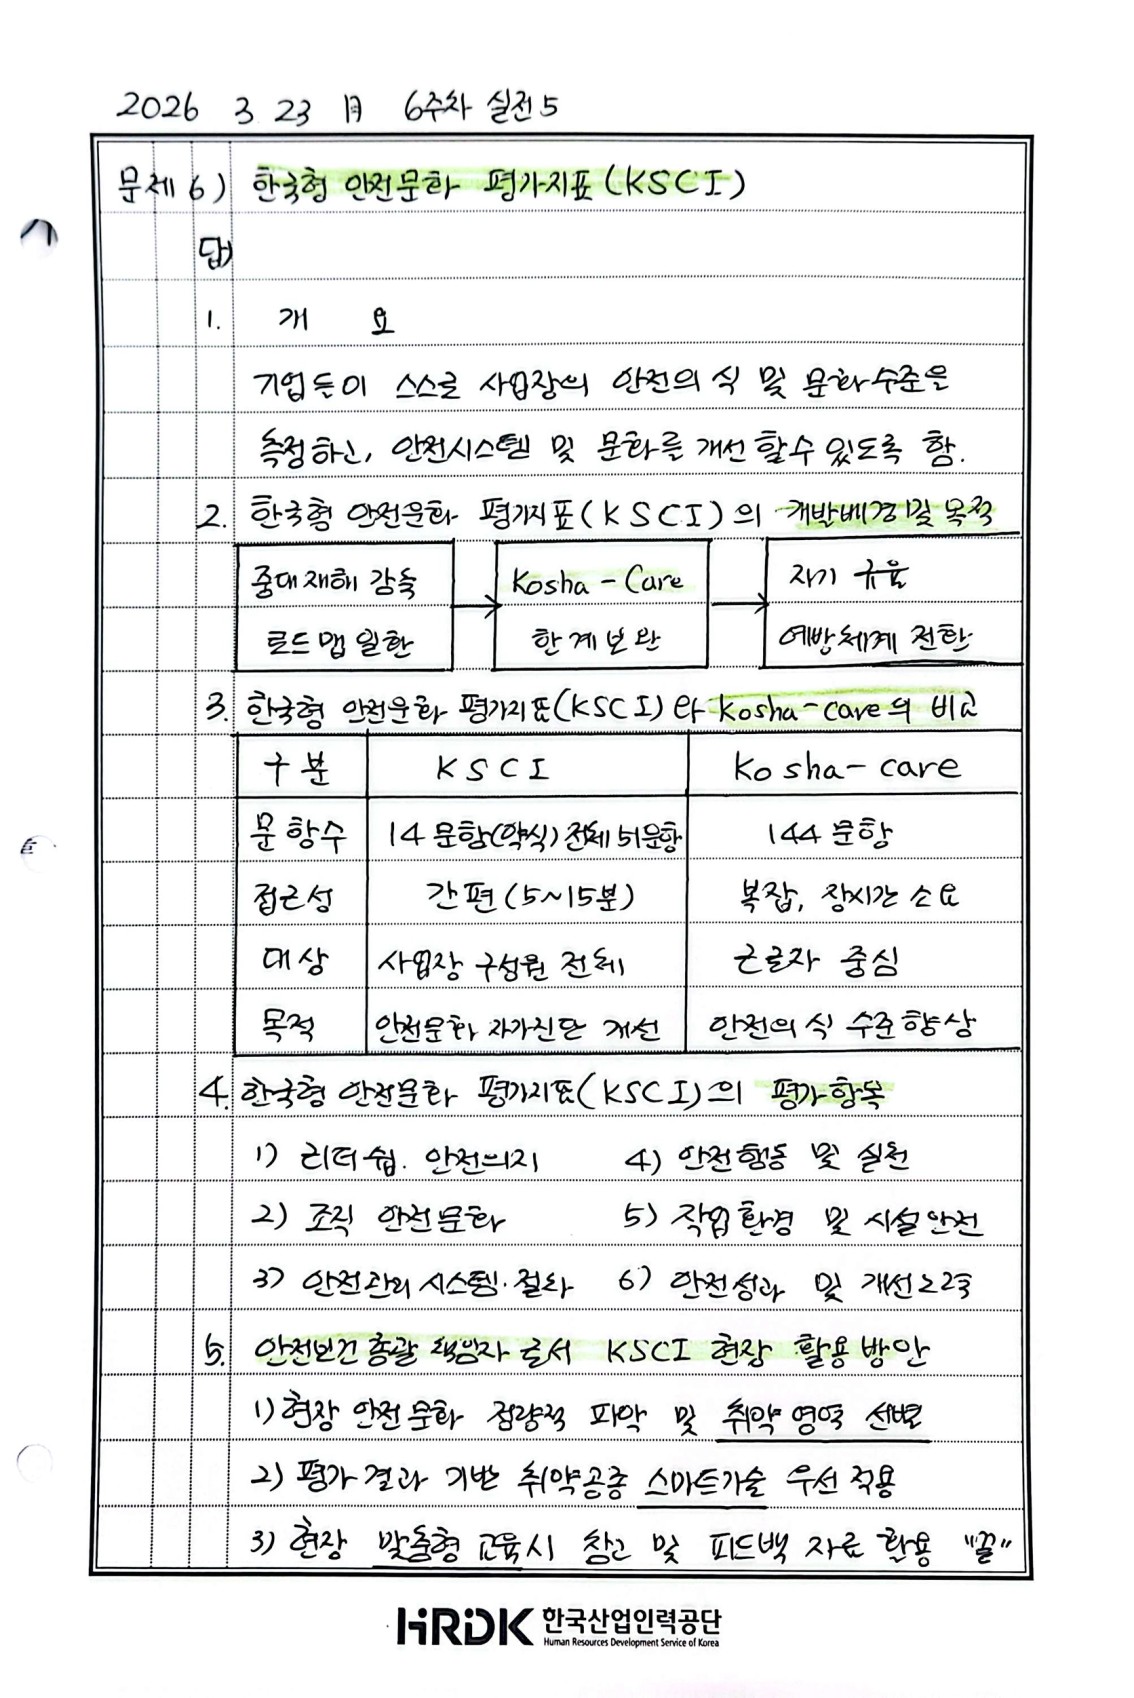 2026 3 23 月 6주차 실전5
문제 6) 한국형 안전문화 평가지표(KSCI)
답)
1. 개 요
기업들이 스스로 사업장의 안전의식 및 문화수준을
측정하고, 안전시스템 및 문화를 개선할수 있도록 함.
2. 한국형 안전문화 평가지표(KSCI)의 개발배경 및 목적
중대재해 감축 Kosha-Care 자기 규율
로드맵 일환 한계보완 예방체계 전환
3. 한국형 안전문화 평가지표(KSCI)와 Kosha-care의 비교
구분 KSCI Kosha-care
문항수 14문항(약식) 전체 51문항 144문항
접근성 간편(5~15분) 복잡, 장시간 소요
대상 사업장 구성원 전체 근로자 중심
목적 안전문화 자가진단 개선 안전의식 수준향상
4. 한국형 안전문화 평가지표(KSCI)의 평가항목
1) 리더쉽. 안전의지 4) 안전행동 및 실천
2) 조직 안전문화 5) 작업환경 및 시설안전
3) 안전관리 시스템·절차 6) 안전성과 및 개선노력
5. 안전보건총괄책임자로서 KSCI 현장 활용방안
1) 현장 안전문화 정량적 파악 및 취약영역 선별
2) 평가결과 기반 취약공종 스마트기술 우선적용
3) 현장 맞춤형 교육시 참고 및 피드백 자료 활용 "끝"
HRDK 한국산업인력공단
Human Resources Development Service of Korea